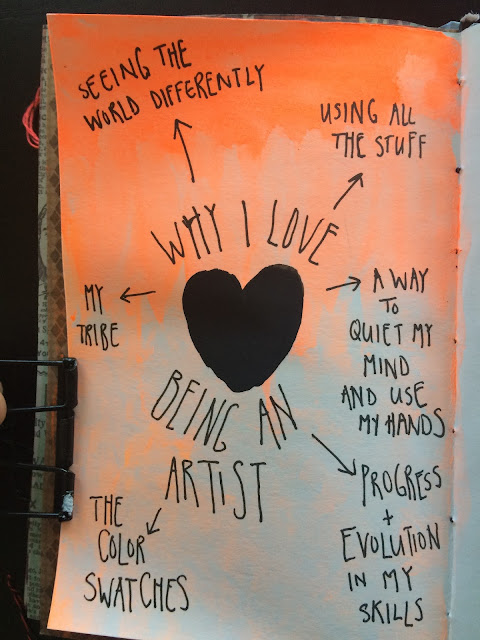 SEEING THE
WORLD DIFFERENTLY
USING ALL
THE STUFF
WHY I LOVE
MY
TRIBE
A WAY
TO
QUIET MY
MIND
AND USE
MY HANDS
BEING AN
ARTIST
THE
COLOR
SWATCHES
PROGRESS
+
EVOLUTION
IN MY
SKILLS